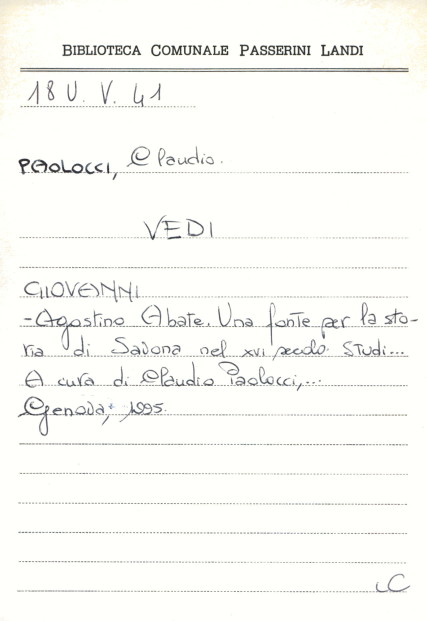 BIBLIOTECA COMUNALE PASSERINI LANDI
18 U. V. 41
PAOLOCCI, Claudio.
VEDI
GIOVANNI
-Agostino Abate. Una fonte per la sto-
ria di Savona nel XVI secolo. Studi...
A cura di Claudio Paolocci,...
Genova, 1995.